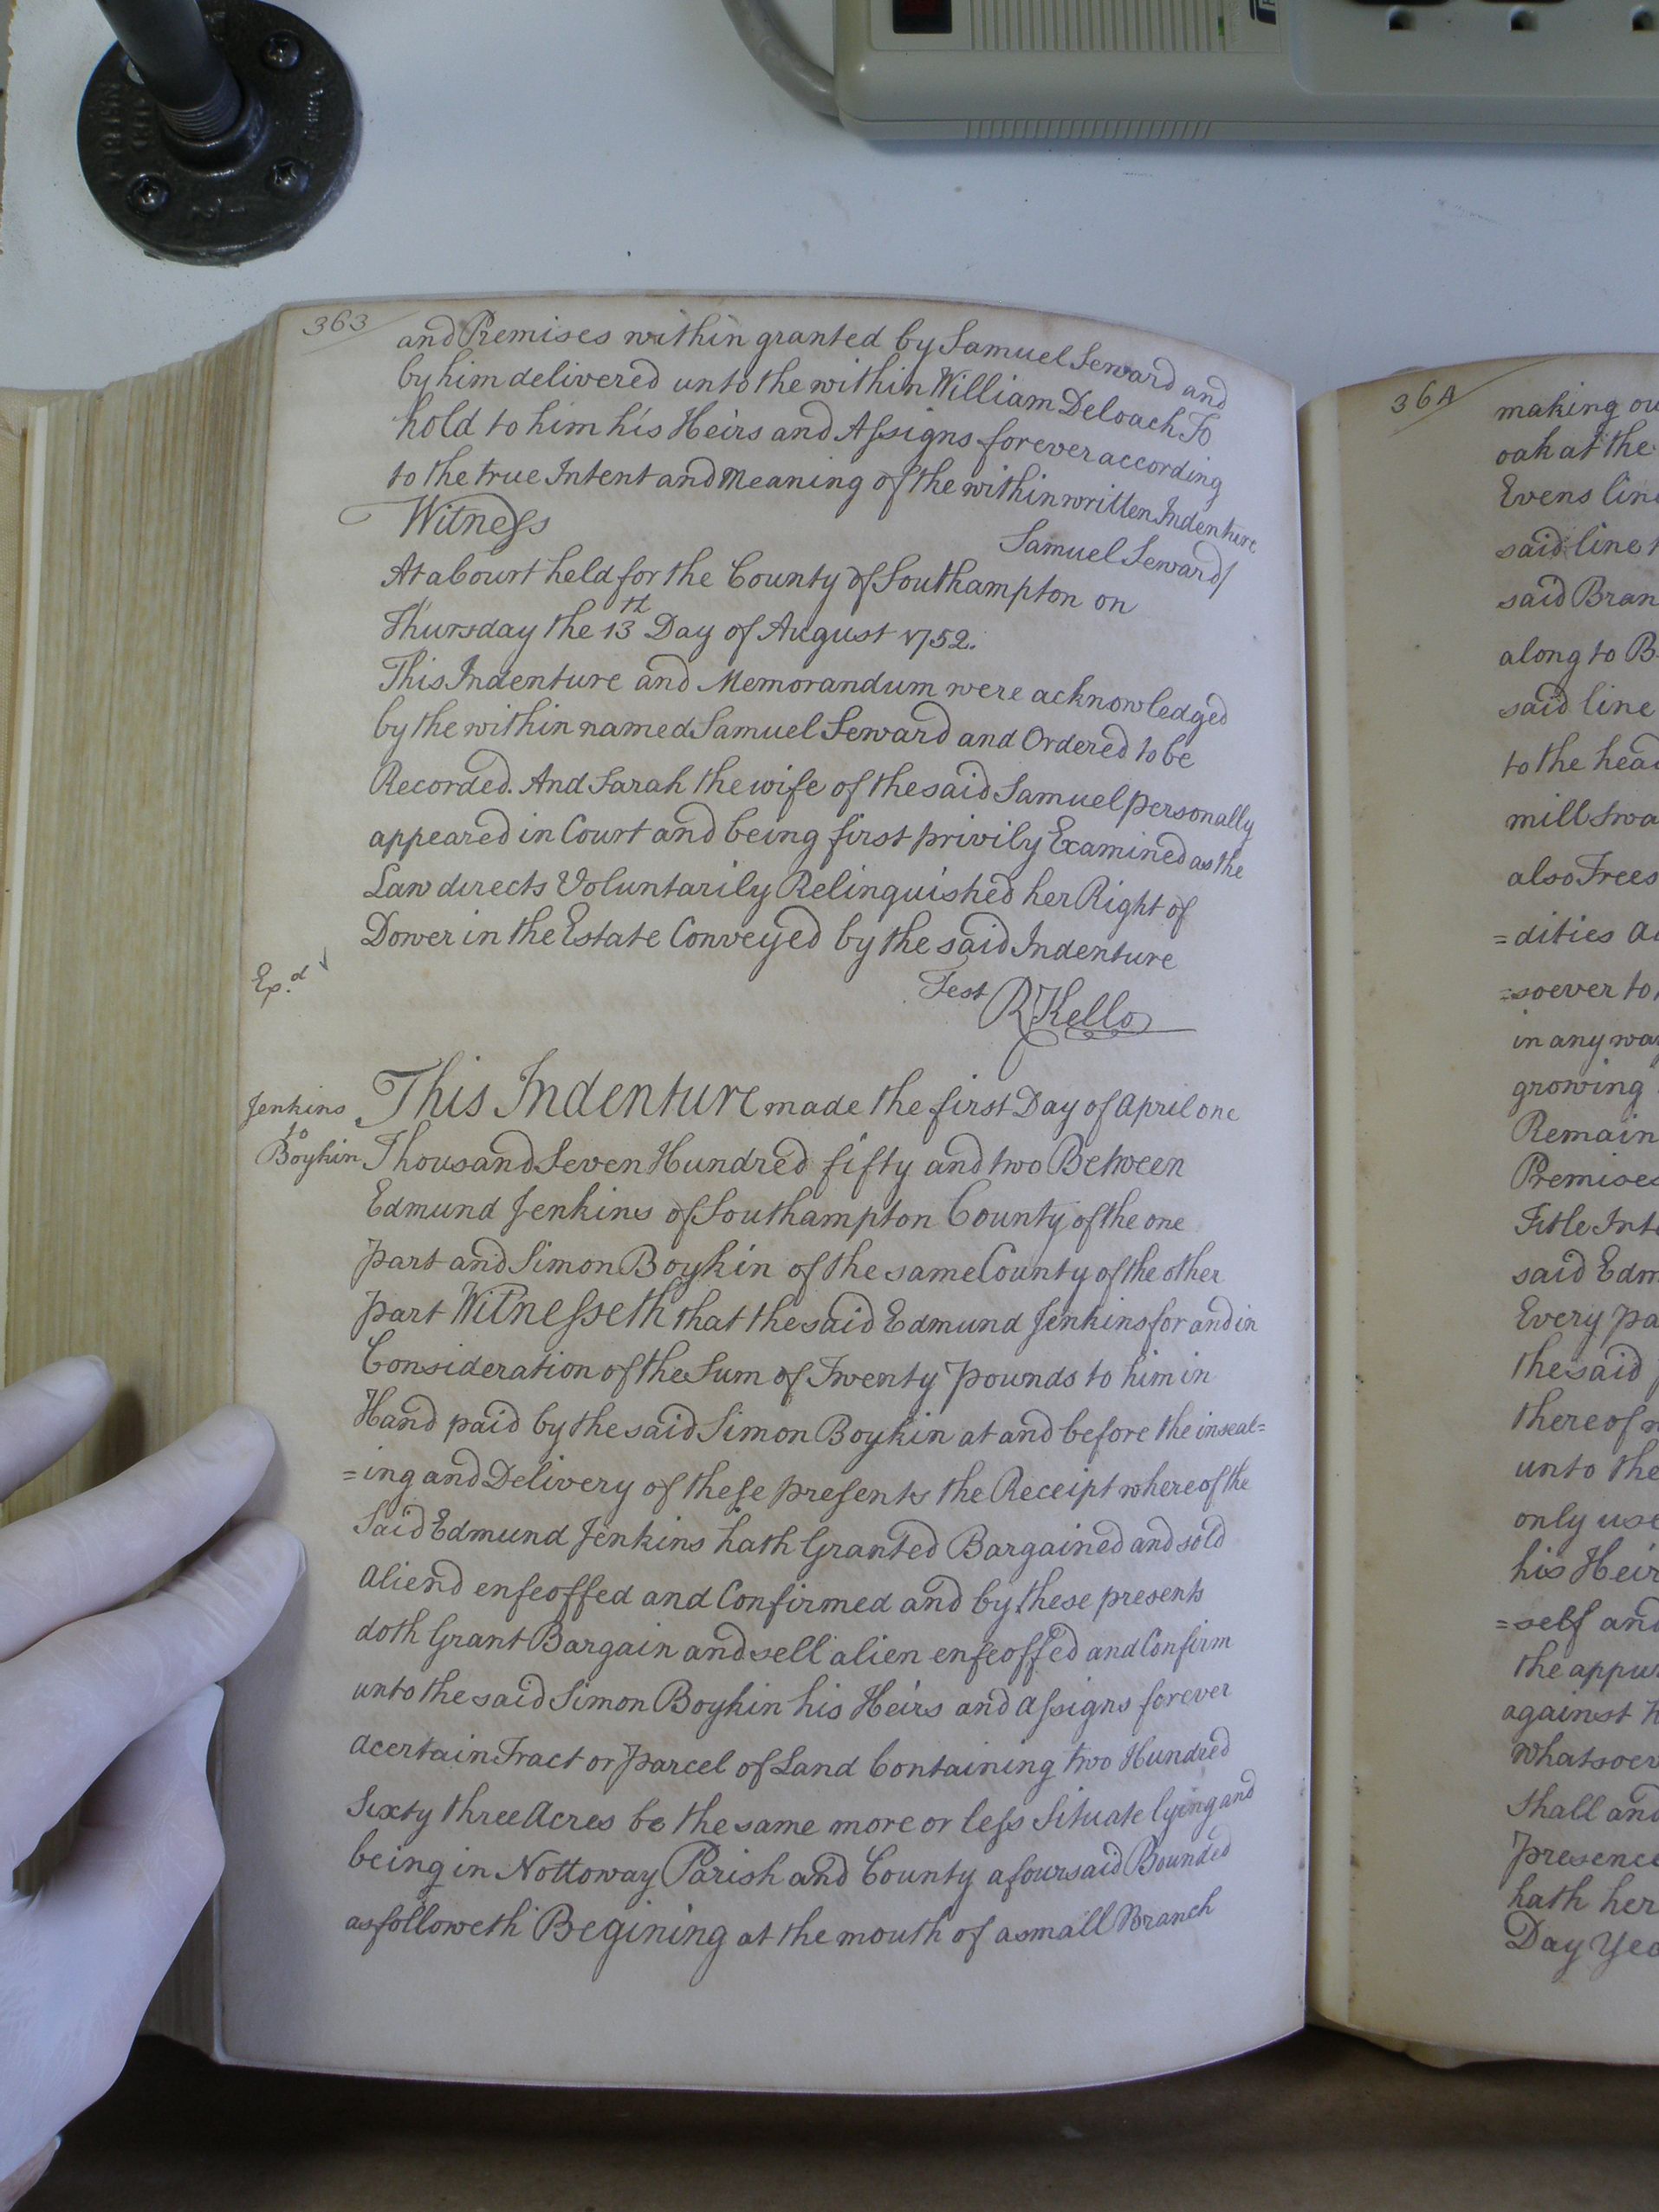 363
and Premises within granted by Samuel Seward and
by him delivered unto the within William Deloach To
hold to him his Heirs and Assigns forever according
to the true Intent and Meaning of the within written Indenture
Witness
Samuel Seward/
At a Court held for the County of Southampton on
Thursday the 13th Day of August 1752.
This Indenture and Memorandum were acknowledged
by the within named Samuel Seward and Ordered to be
Recorded. And Sarah the wife of the said Samuel personally
appeared in Court and being first privily Examined as the
Law directs Voluntarily Relinquished her Right of
Dower in the Estate Conveyed by the said Indenture
Exd.
Test R Kello
Jenkins
to
Boykin
This Indenture made the first Day of April one
Thousand Seven Hundred fifty and two Between
Edmund Jenkins of Southampton County of the one
part and Simon Boykin of the same County of the other
part Witnesseth that the said Edmund Jenkins for and in
Consideration of the Sum of Twenty Pounds to him in
Hand paid by the said Simon Boykin at and before the inseal=
=ing and Delivery of these presents the Receipt whereof the
Said Edmund Jenkins hath Granted Bargained and sold
aliend enfeoffed and Confirmed and by these presents
doth Grant Bargain and sell alien enfeoffed and Confirm
unto the said Simon Boykin his Heirs and assigns forever
a certain Tract or parcel of Land Containing two Hundred
Sixty three Acres be the same more or less Situate lyeng and
being in Nottoway Parish and County afoursaid Bounded
as followeth Begining at the mouth of a small Branch
364
making ou
oak at the
Evens line
said line t
said Bran
along to B
said line
to the head
mill swa
also Trees
=dities a
=soever to
in any way
growing
Remain
Premises
Title Inte
said Edm
Every pa
the said
thereof
unto the
only use
his Heir
=self and
the appur
against h
whatsoev
shall and
presence
hath her
Day Yea